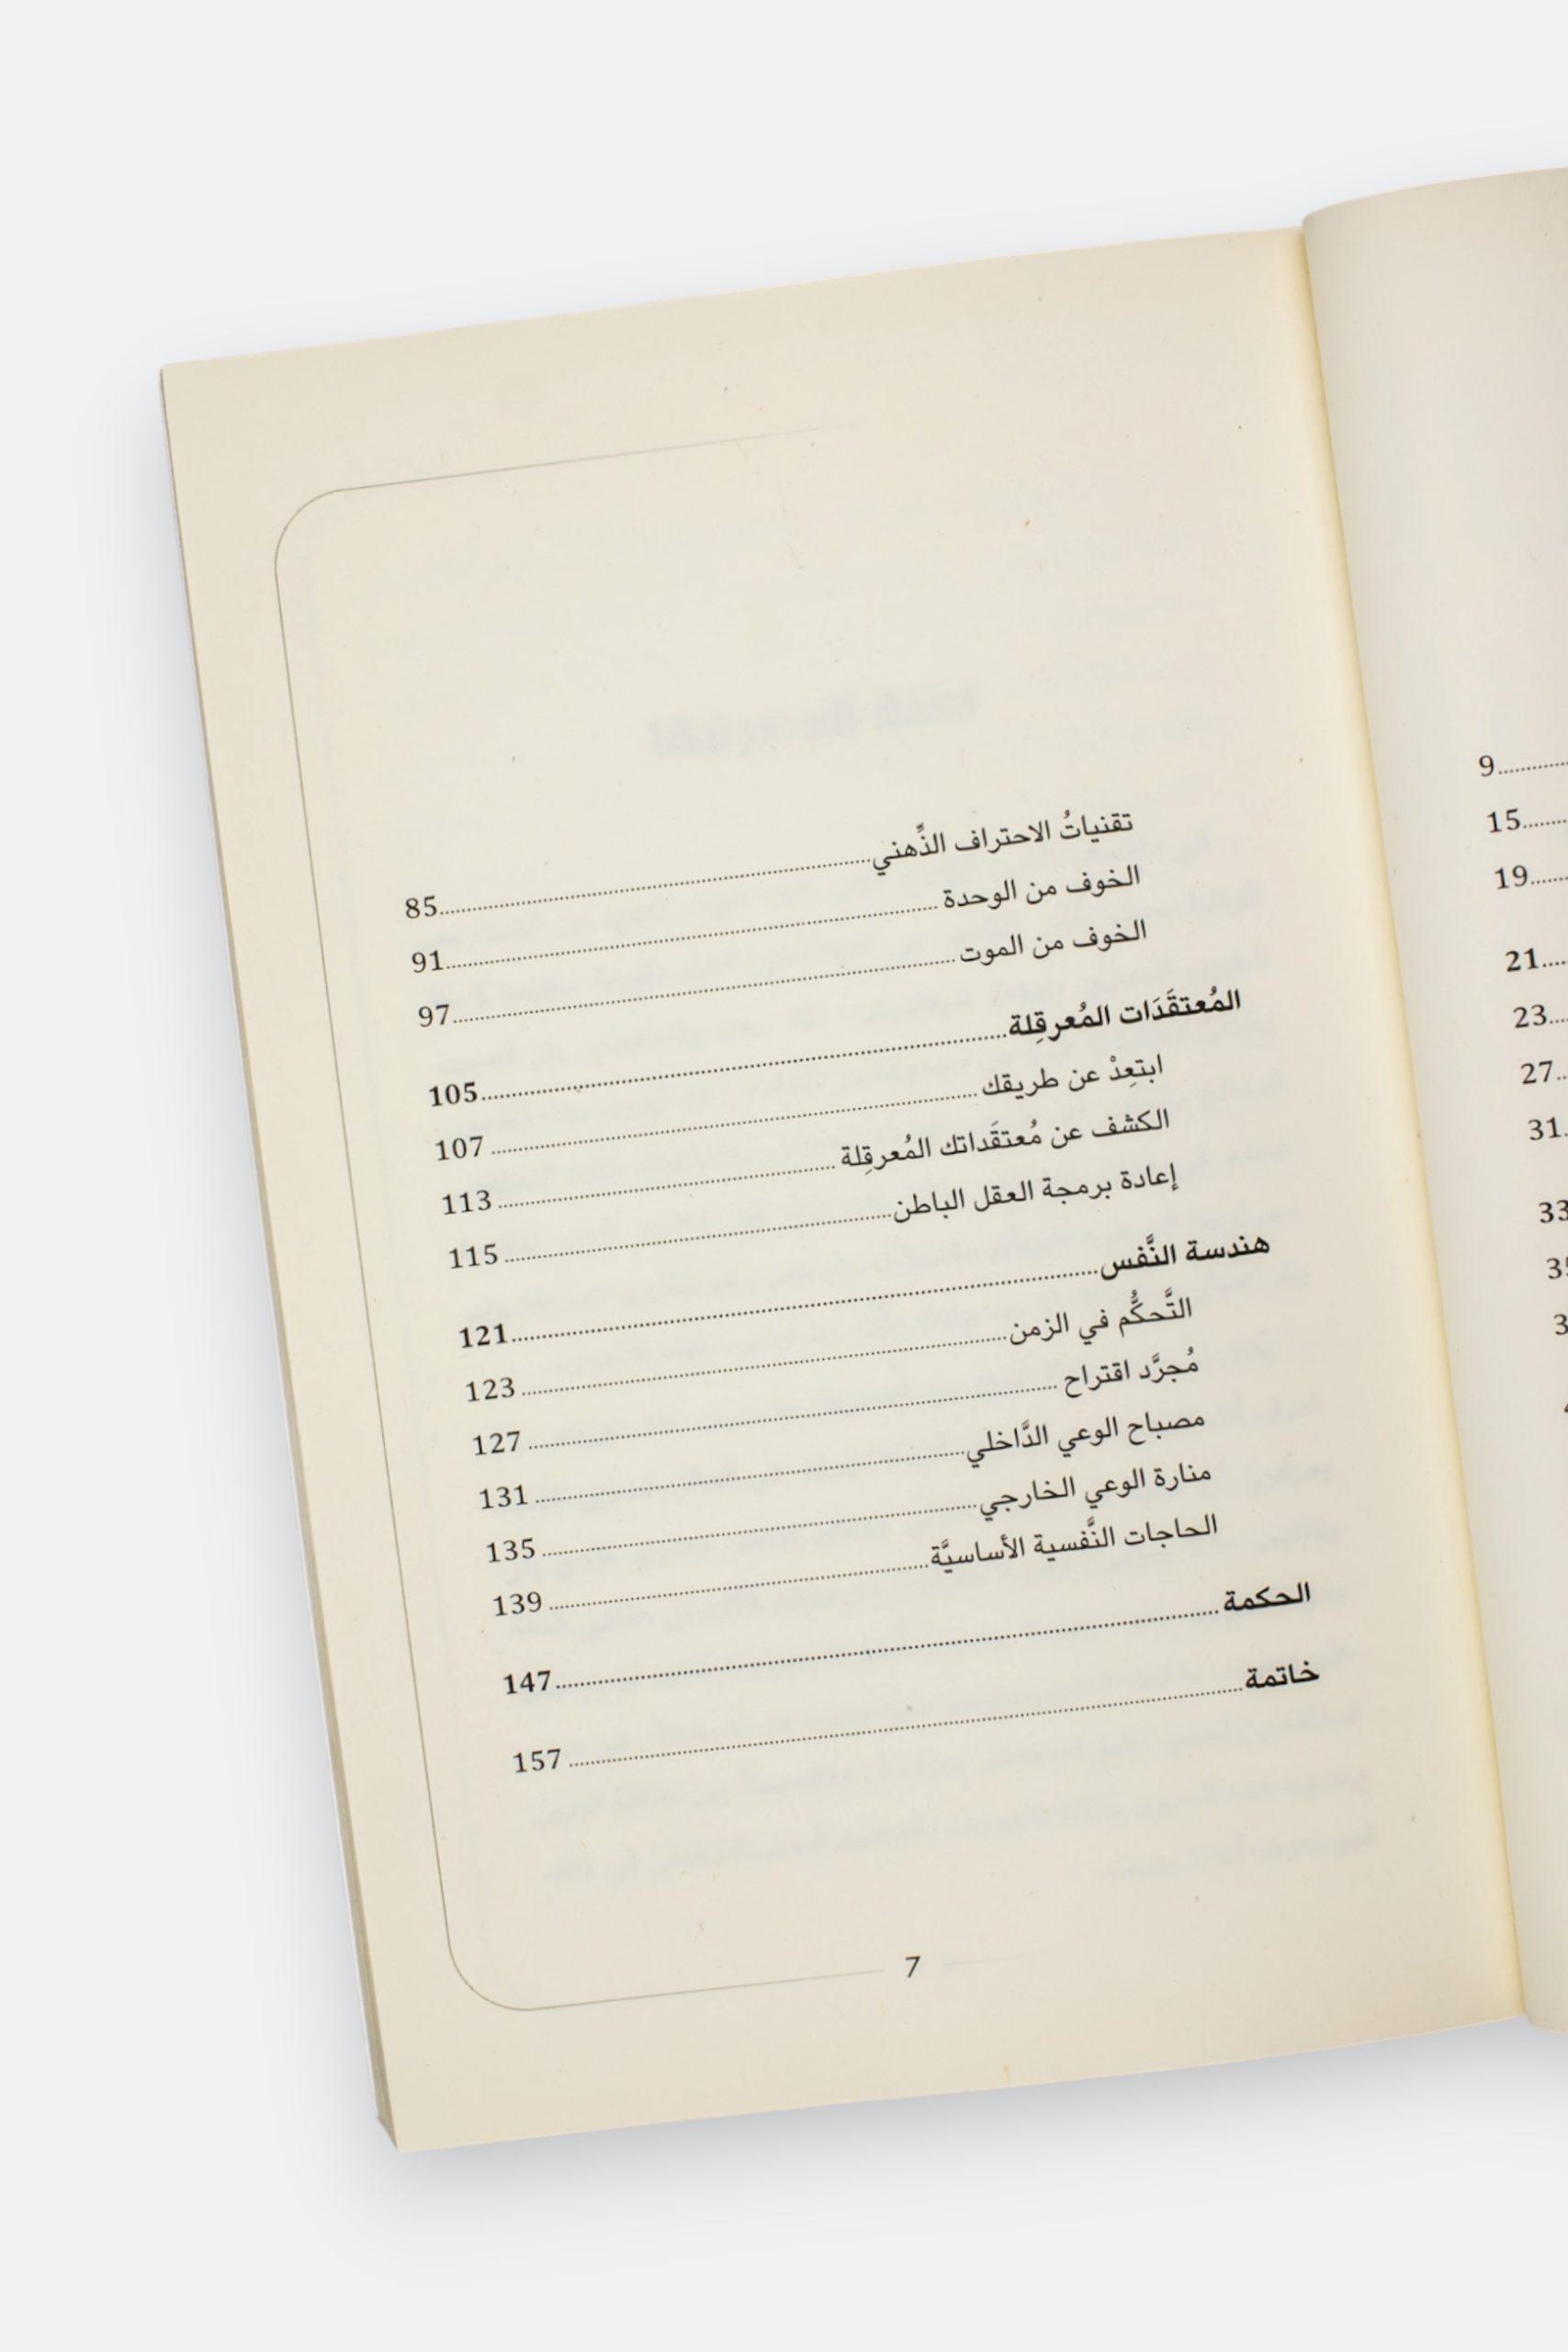 9
15
19
21
23
27
31
33
تقنياتُ الاحتراف الذِّهني 85
الخوف من الوحدة 91
الخوف من الموت 97
المُعتقَدَات المُعرقِلة 105
ابتعِدْ عن طريقك 107
الكشف عن مُعتقَداتك المُعرقِلة 113
إعادة برمجة العقل الباطن 115
هندسة النَّفس 121
التَّحكُّم في الزمن 123
مُجرَّد اقتراح 127
مصباح الوعي الدَّاخلي 131
منارة الوعي الخارجي 135
الحاجات النَّفسية الأساسيَّة 139
الحكمة 147
خاتمة 157
7